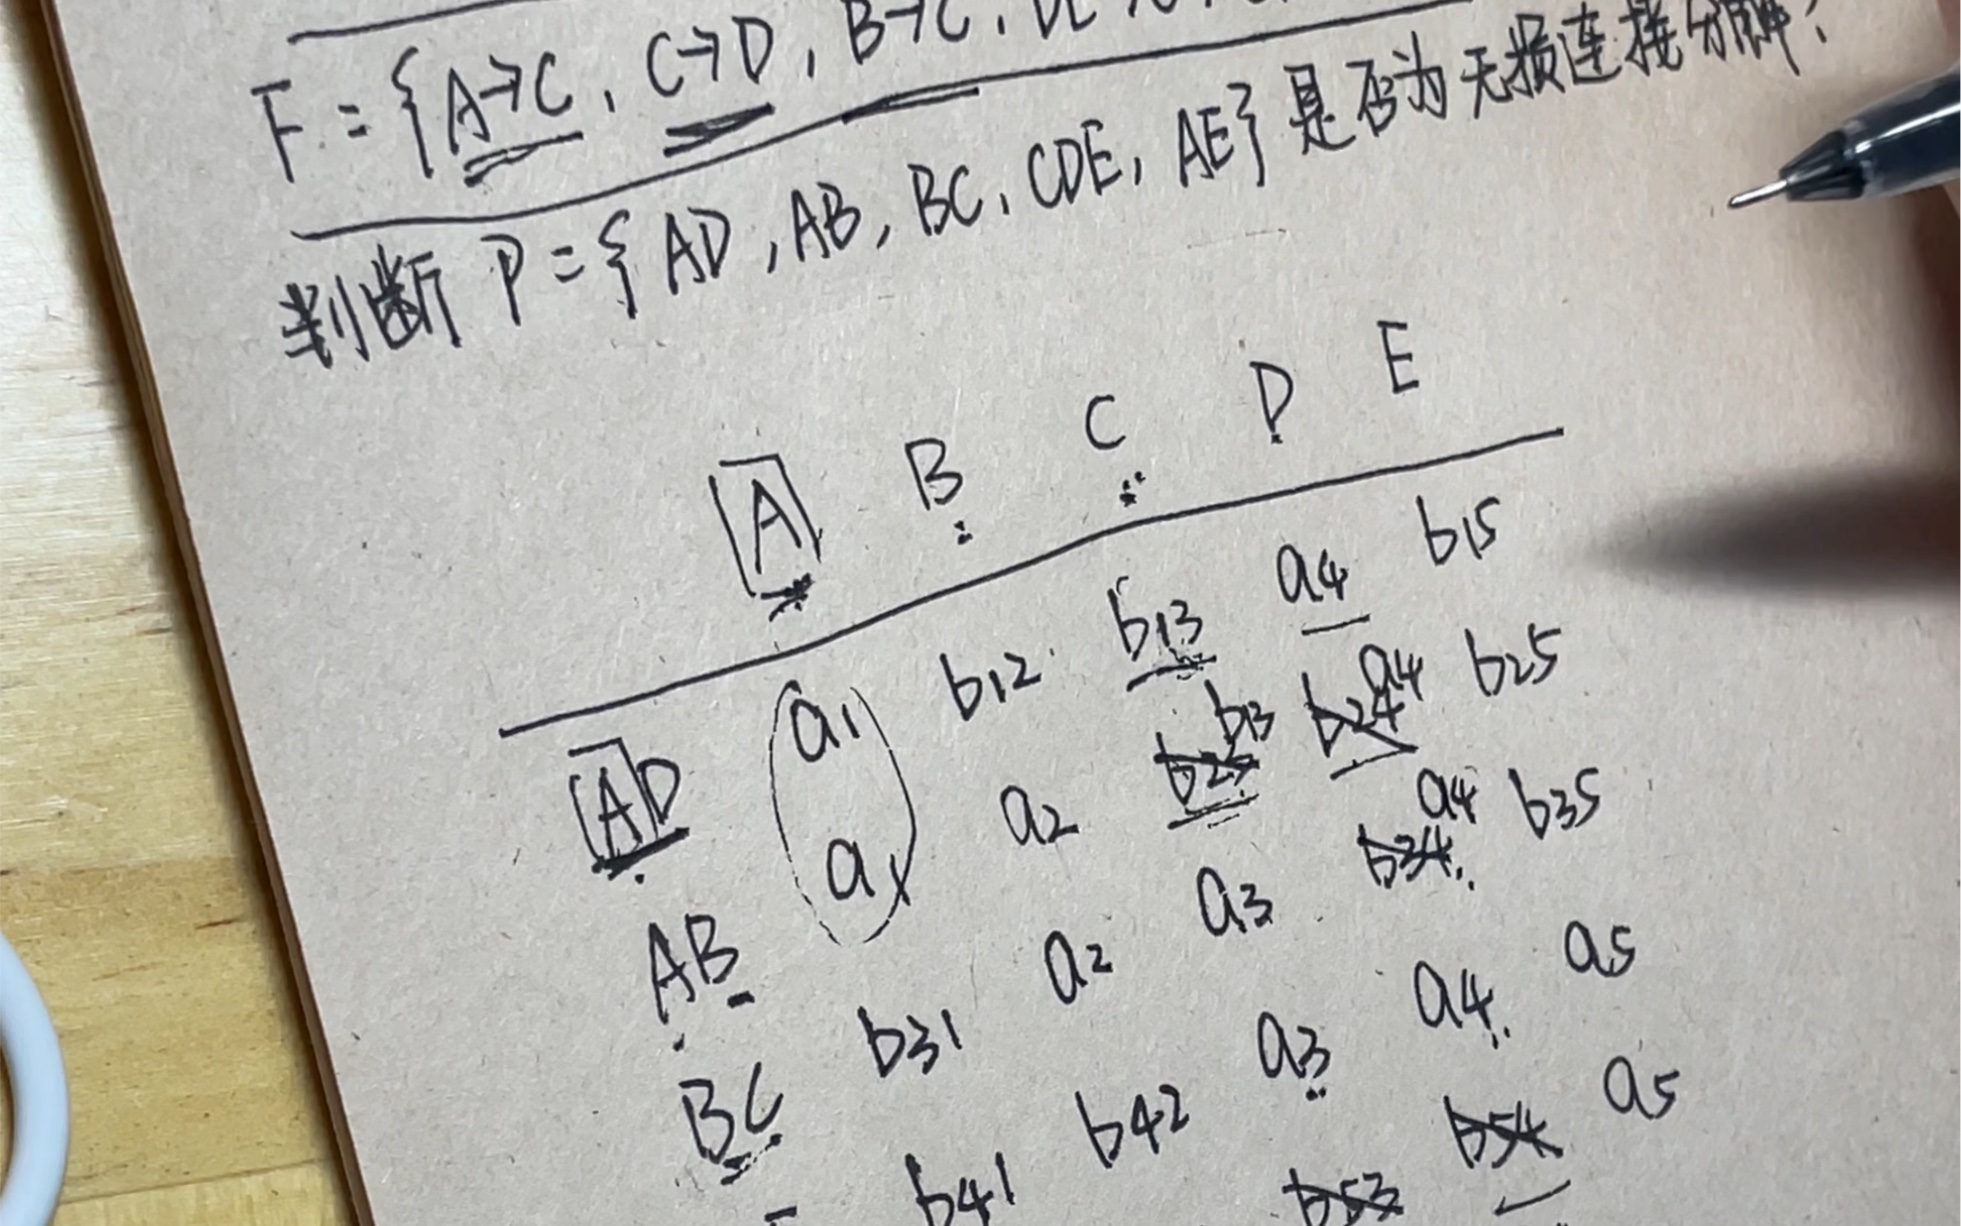 F = { A→C , C→D , B→C , DE→C ,
判断 P = { AD , AB , BC , CDE , AE } 是否为无损连接分解?
A B C D E
AD a1 b12 b13 a4 b15
AB a1 a2 b23 b13 b24 a4 b25
BC b31 a2 a3 b34 a4 b35
b41 b42 a3 a4 a5
b53 b54 a5